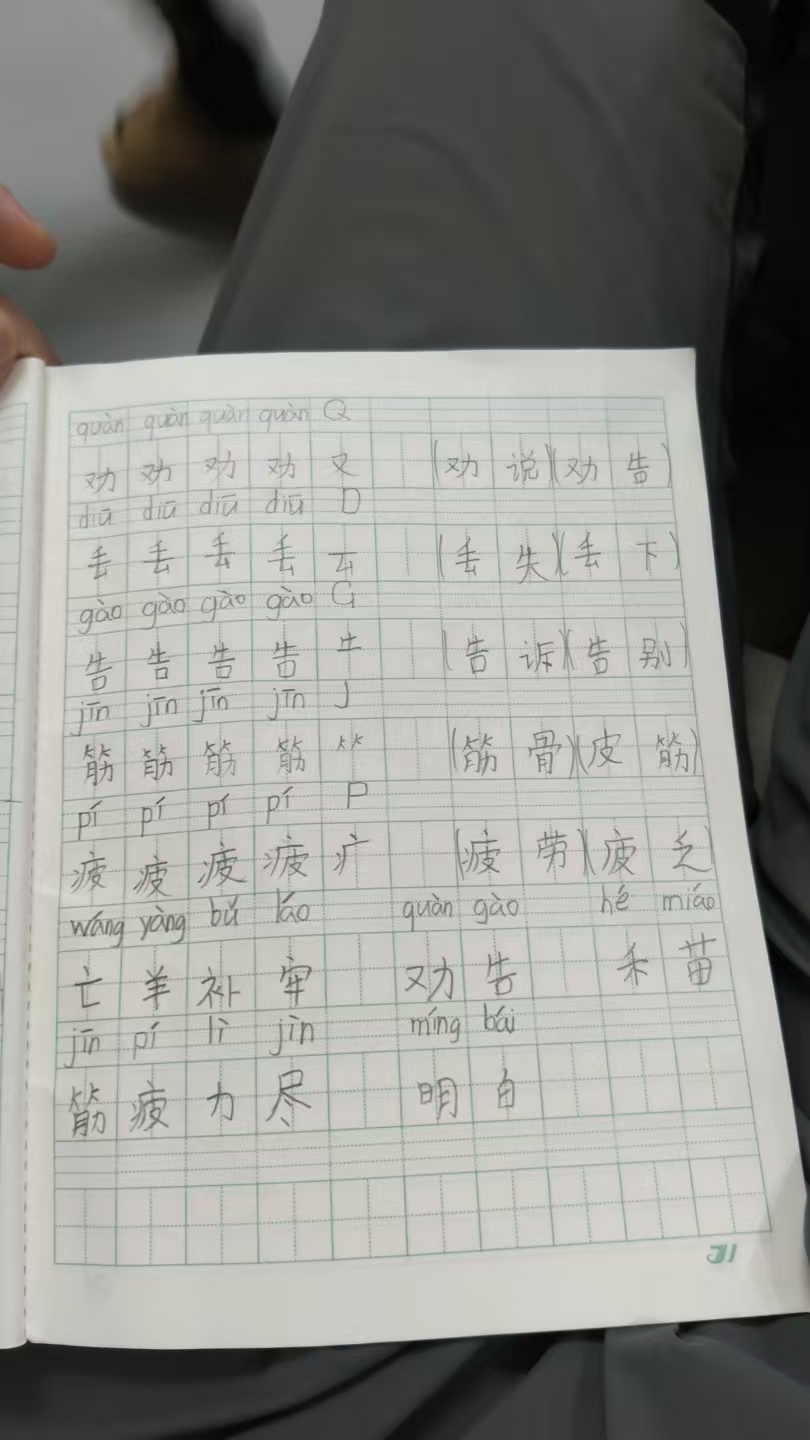 quàn quàn quàn quàn Q
劝 劝 劝 劝 又 (劝 说)(劝 告)
diū diū diū diū D
丢 丢 丢 丢 (丢 失)(丢 下)
gào gào gào gào G
告 告 告 告 (告 诉)(告 别)
jīn jīn jīn jīn J
筋 筋 筋 筋 ⺮ (筋 骨)(皮 筋)
pí pí pí pí P
疲 疲 疲 疲 疒 (疲 劳)(疲 乏)
wáng yàng bǔ láo quàn gào hé miáo
亡 羊 补 牢 劝 告 禾 苗
jīn pí lì jìn míng bái
筋 疲 力 尽 明 白
31